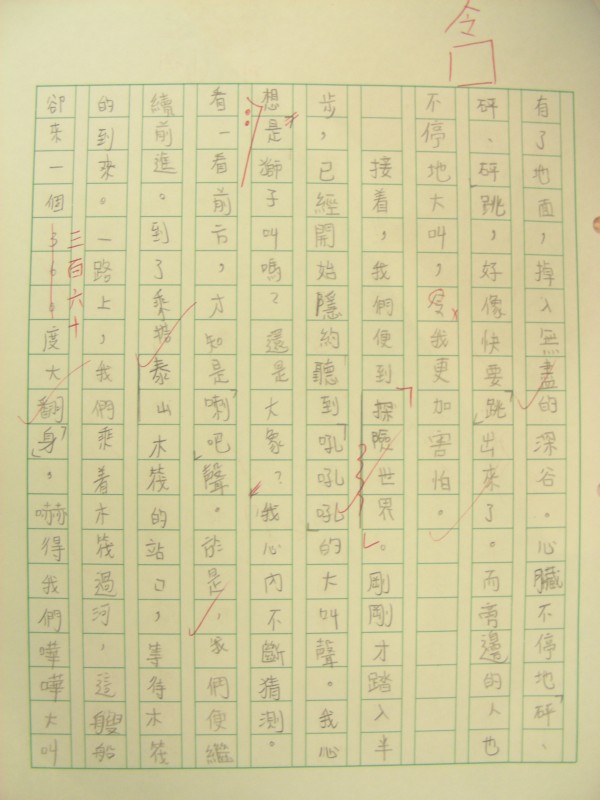 令
有了地面，掉入無盡的深谷。心臟不停地「砰、
砰、砰」跳，好像快要「跳」出來了。而旁邊的人也
不停地大叫，我更加害怕。
接着，我們便到「探險世界」。剛剛才踏入半
步，已經開始隱約聽到「吼吼吼」的大叫聲。我心
想是獅子叫嗎？還是大象？我心內不斷猜測。
看一看前方，才知是「喇」吧聲。於是，我們便繼
續前進。到了乘搭泰山木筏的站口，等待木筏
的到來。一路上，我們乘着木筏過河，這艘船
卻來一個360度大「翻身」，嚇得我們嘩嘩大叫
三百六十